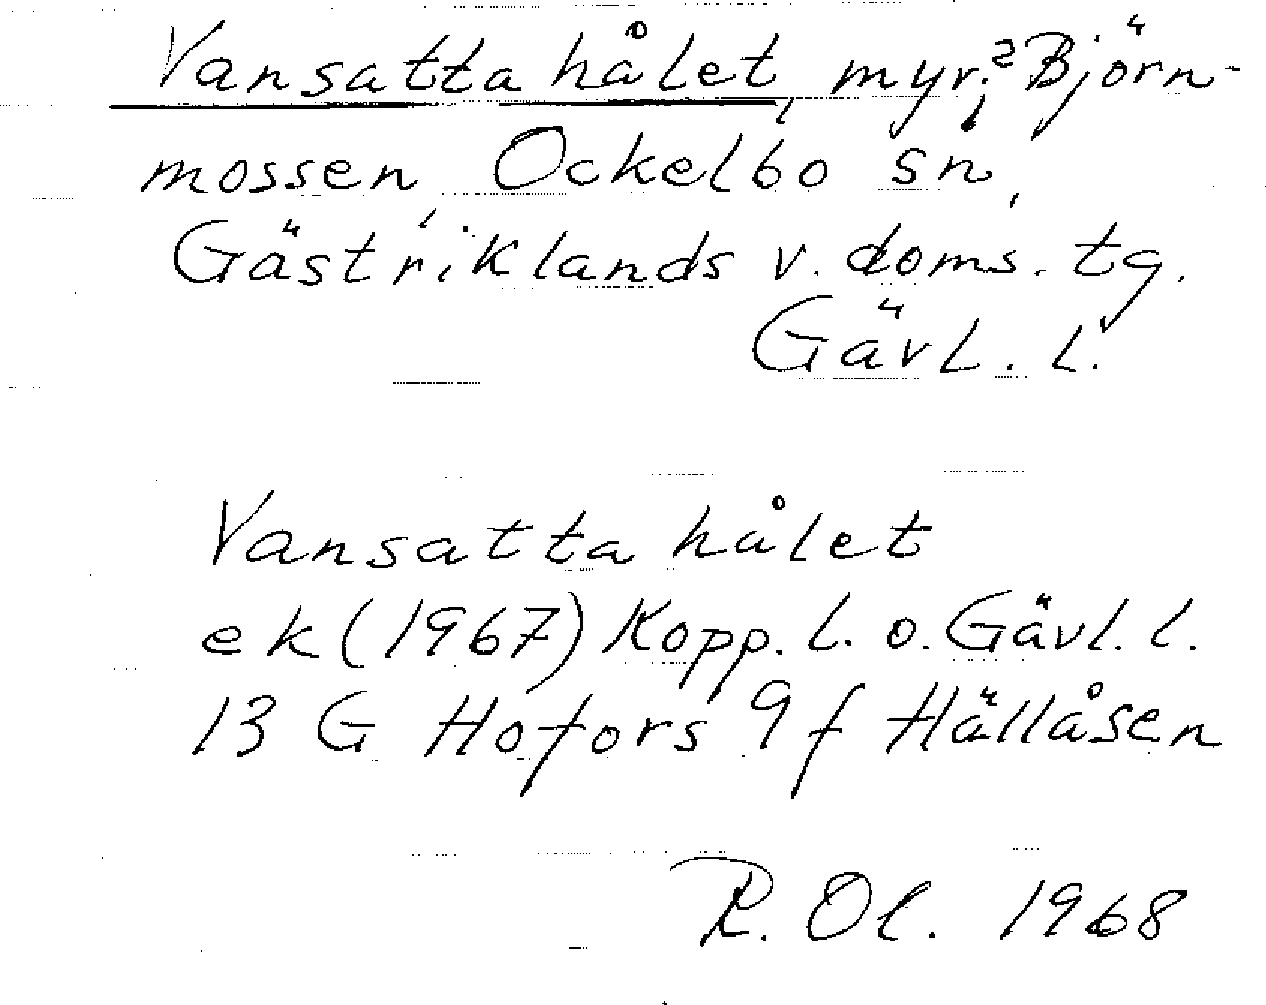 Vansatta hålet, myr,? Björn-
mossen, Ockelbo sn,
Gästriklands v. doms. tg.
Gävl. l.
Vansatta hålet
ek (1967) Kopp. l. o. Gävl. l.
13 G Hofors 9 f Hällåsen
R. Ol. 1968